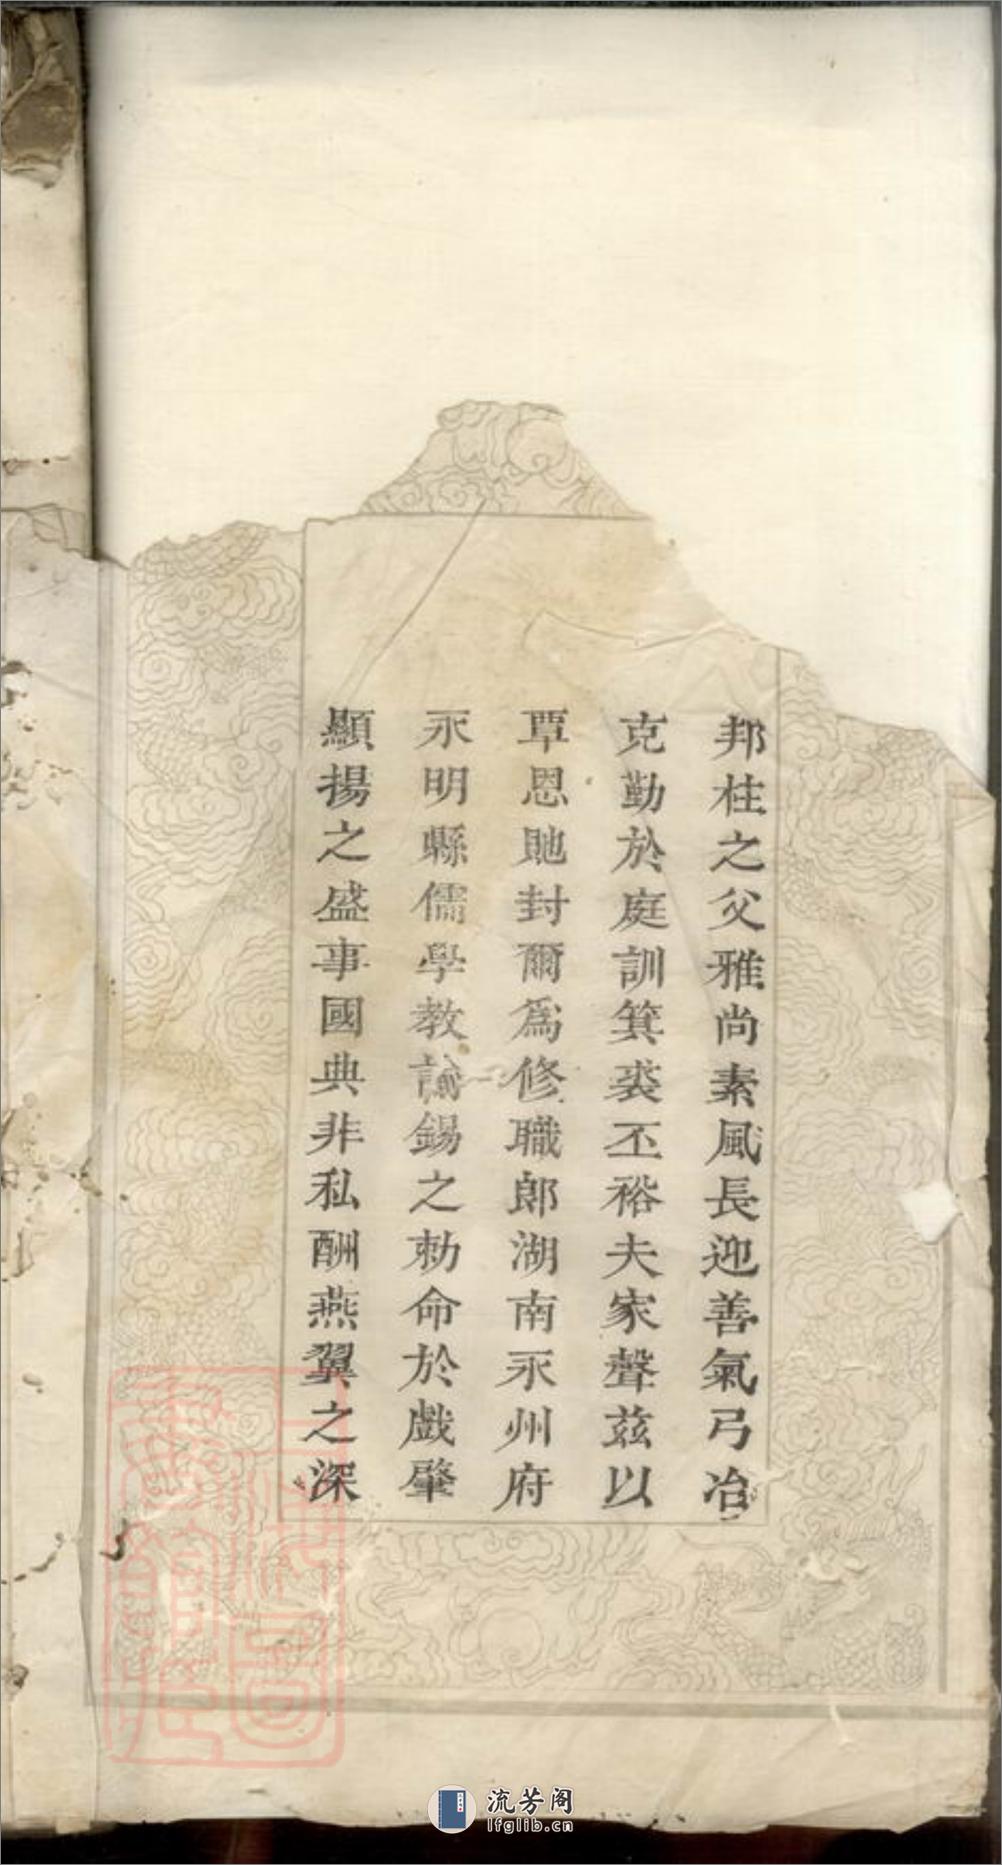 邦柱之父雅尚素風長迎善氣弓冶
克勤於庭訓箕裘丕裕夫家聲茲以
覃恩貤封爾為修職郎湖南永州府
永明縣儒學教諭錫之勅命於戲肇
顯揚之盛事國典非私酬燕翼之深
流芳阁
lfglib.cn